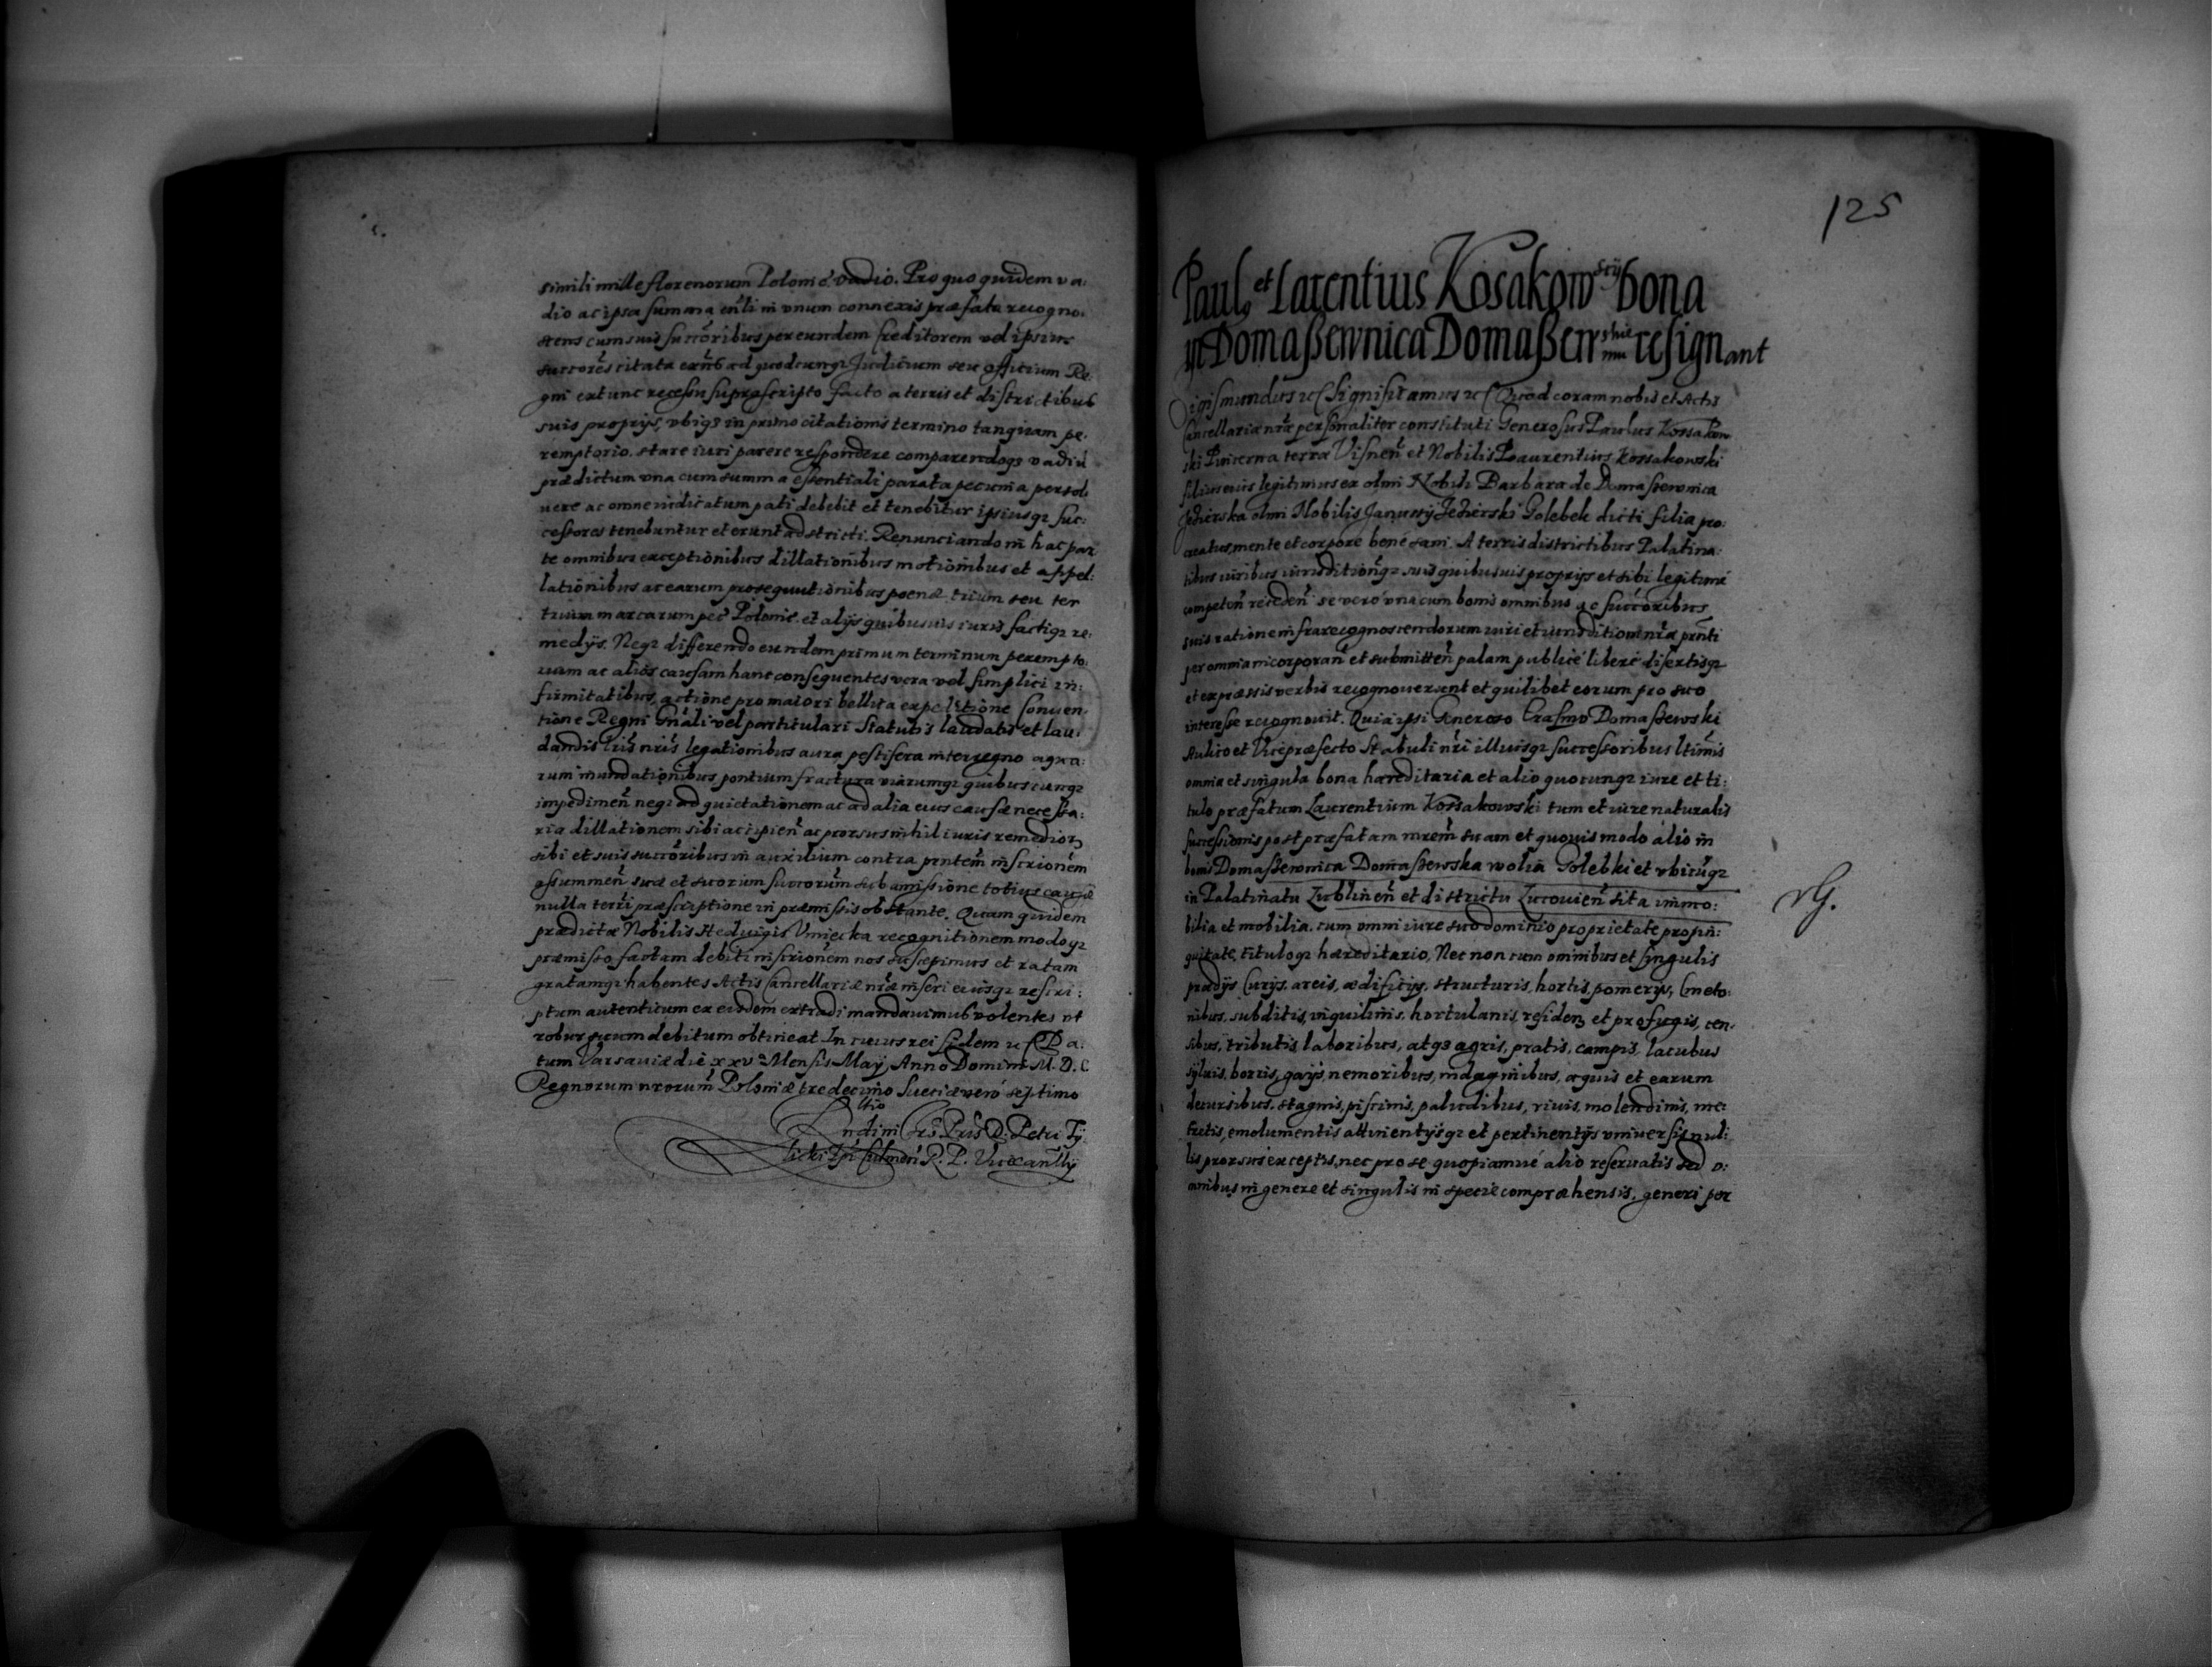 simili mille florenorum Polonic̃. vadio. Pro quo quidem va:
dio ac ipsa summa en̄li in vnum connexis præfata recogno:
scens cum suis succ̃oribus per eundem Creditorem vel ipsius
succ̃ores citata ad quodcunq3 Judicium seu officium Re:
gni extunc recessu suprascripto facto a terris et districtibus
suis proprijs, vbiq3 in primo citationis termino tanquam pe:
remptorio. stare iuri parere respondere comparendoq3 vadiũ
prædictum vna cum summa essentiali parata pecunia persol:
uere ac omne iudicatum pati debebit et tenebitur ipsiusq3 suc:
cessores tenebuntur et erunt adstricti. Renunciando in hac par
te omnibus exceptionibus dillationibus motionibus et appel:
lationibus ac earum prosequutionibus poenæ trium seu ter
trium marcarum pec̃ Polonic̃. et alijs quibusuis iuris factiq3 re:
medijs. Neq3 differendo eundem primum terminum perempto:
rium ac alios causam hanc consequentes vera vel simplici in:
firmitatibus, actione pro maiori bellica expeditione Conuen:
tione Regni Gn̄ali vel particulari Statutis laudatis et lau:
dandis lr̃is nr̃is legationibus aura pestifera interregno aqua:
rum inundationibus pontium fractura viarumq3 quibuscunq3
impedimen̄ neq3 ad quietationem ac ad alia eius causæ necessa:
ria dillationem sibi accipien̄ ac prorsus nihil iuris remedior
sibi et suis succ̃oribus in auxilium contra pntem̃ inscrionem̃
assummen̄ suæ et suorum succorum̃ sub amissione totius causæ
nulla terr̃i præscriptione in præmissis obstante. Quam quidem
prædictæ Nobilis Heduigis Vmiecka recognitionem modoq3
præmisso factam debiti inscrionem̃ nos suscepimus et ratam
gratamq3 habentes Actis Cancellariæ nr̃æ inseri eiusq3 rescri:
ptum autenticum ex eisdem extradi mandauimus volentes vt
robur suum debitum obtineat In cuius rei fidem Da:
tum Varsauiæ die xxva Mensis Maij Anno Domini M. D. C
Regnorum nrorum̃ Poloniæ tredecimo Sueciæ vero septimo
Rltio
Rndini Chrõ Pris D. Petri Ty
licki Epi Culmen̄ R. P. Vicecanllij
125
Paulg et Larentius Kosakowscij bona
in Domaßewnica Domaßewskie mu resignant
Sigismundus Significamus Quod coram nobis et Actis
Cancellariæ nr̃æ personaliter constituti Generosus Paulus Kossakow
ski Pincerna terræ Visnen̄ et Nobilis Laurentius Kossakowski
filius eius legitimus ex olim Nobili Barbara de Domaszewnica
Jezierska olim Nobilis Janussij Jezierski Golebek dicti filia pro:
creatus, mente et corpore bene sani. A terris districtibus Palatina:
tibus iuribus iurisdictionq3 suis quibusuis proprijs et sibi legitime
competen̄ receden̄ se vero vna cum bonis omnibus ac succ̃oribus
suis ratione infrarecognoscendorum iuri et iurisdictioni nr̃æ prn̄ti
per omnia incorporan̄ et submitten̄ palam publicé liberé disertisq3
et expressis verbis recognouerunt et quilibet eorum pro suo
interesse recognouit. Quia ipsi Generoso Erasmo Domaszewski
Aulico et Vicepræfecto Stabuli nr̃i illiusq3 successoribus ltimis̃
omnia et singula bona hæreditaria et alio quocunq3 iure et ti:
tulo præfatum Laurentium Kossakowski tum et iure naturalis
successionis post præfatam mrem̃ suam et quouis modo alio in
bonis Domaszewnica Domaszewska wolia Golebki et vbicũq3
in Palatinatu Lublinen̄ et districtu Lucouien̄ sita immo:
vG.
bilia et mobilia. cum omni iure suo dominio proprietate propin̄:
quitate, tituloq3 hæreditario, Nec non cum omnibus et singulis
prædijs Curijs, areis, ædificijs, structuris, hortis, pomerijs, Cmeto:
nibus, subditis, inquilinis, hortulanis, residen et profugis, cen:
sibus, tributis laboribus, atq3 agris, pratis, campis, lacubus
syluis, borris, gaijs, nemoribus, indaginibus, aquis et earum
decursibus. stagnis, piscinis, paludibus, riuis, molendinis, me:
tretis, emolumentis attinentijsq3 et pertinentijs vniuersis nul:
lis prorsus exceptis, nec pro se quopiamué alio reseruatis sed o:
mnibus in genere et singulis in specie compræhensis. generi per